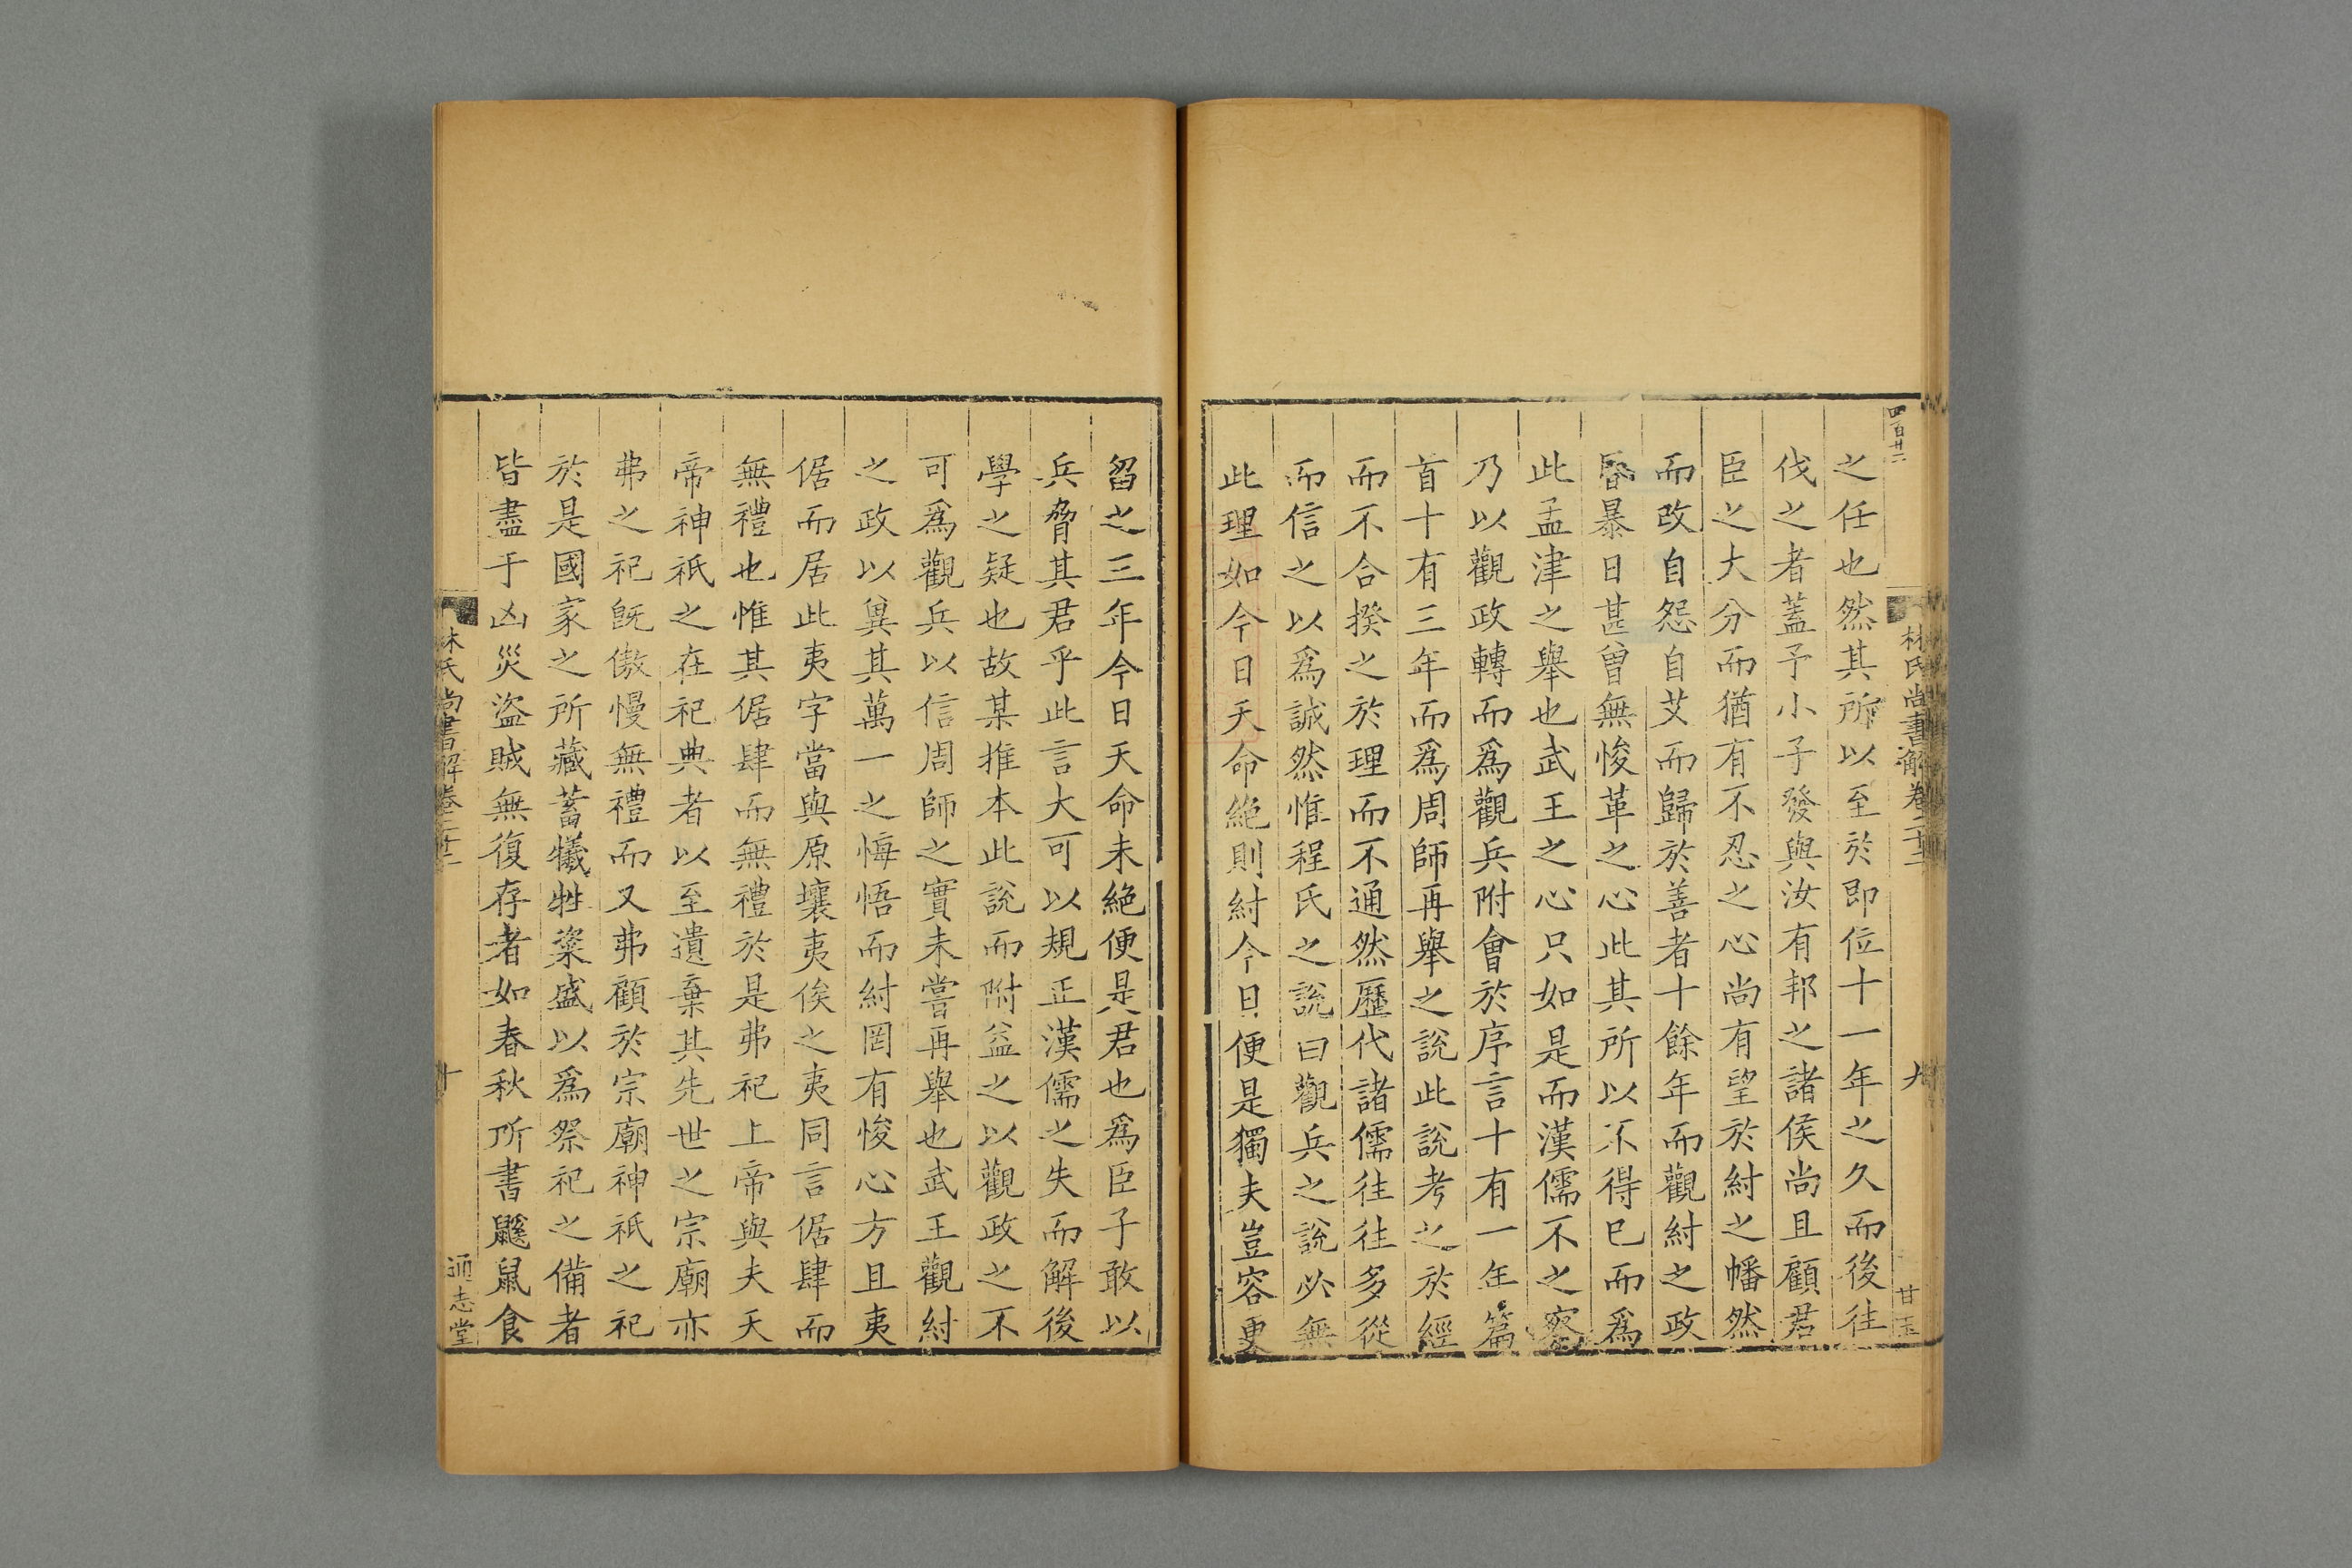 四百廿二
林氏尚書解卷二十二
九
甘玉
之任也然其所以至於即位十一年之久而後往
伐之者蓋予小子發與汝有邦之諸侯尚且顧君
臣之大分而猶有不忍之心尚有望於紂之幡然
而改自怨自艾而歸於善者十餘年而觀紂之政
昬暴日甚曾無悛革之心此其所以不得已而爲
此孟津之舉也武王之心只如是而漢儒不之察
乃以觀政轉而爲觀兵附會於序言十有一年篇
首十有三年而爲周師再舉之說此說考之於經
而不合揆之於理而不通然歷代諸儒往往多從
而信之以爲誠然惟程氏之說曰觀兵之說必無
此理如今日天命絶則紂今日便是獨夫豈容更
留之三年今日天命未絶便是君也爲臣子敢以
兵脅其君乎此言大可以規正漢儒之失而解後
學之疑也故某推本此說而附益之以觀政之不
可爲觀兵以信周師之實未嘗再舉也武王觀紂
之政以兾其萬一之悔悟而紂罔有悛心方且夷
倨而居此夷字當與原壤夷俟之夷同言倨肆而
無禮也惟其倨肆而無禮於是弗祀上帝與夫天
帝神祇之在祀典者以至遺棄其先世之宗廟亦
弗之祀旣傲慢無禮而又弗顧於宗廟神祇之祀
於是國家之所藏蓄犧牲粢盛以爲祭祀之備者
皆盡于凶災盜賊無復存者如春秋所書鼷鼠食
林氏尚書解卷二十二
十
通志堂